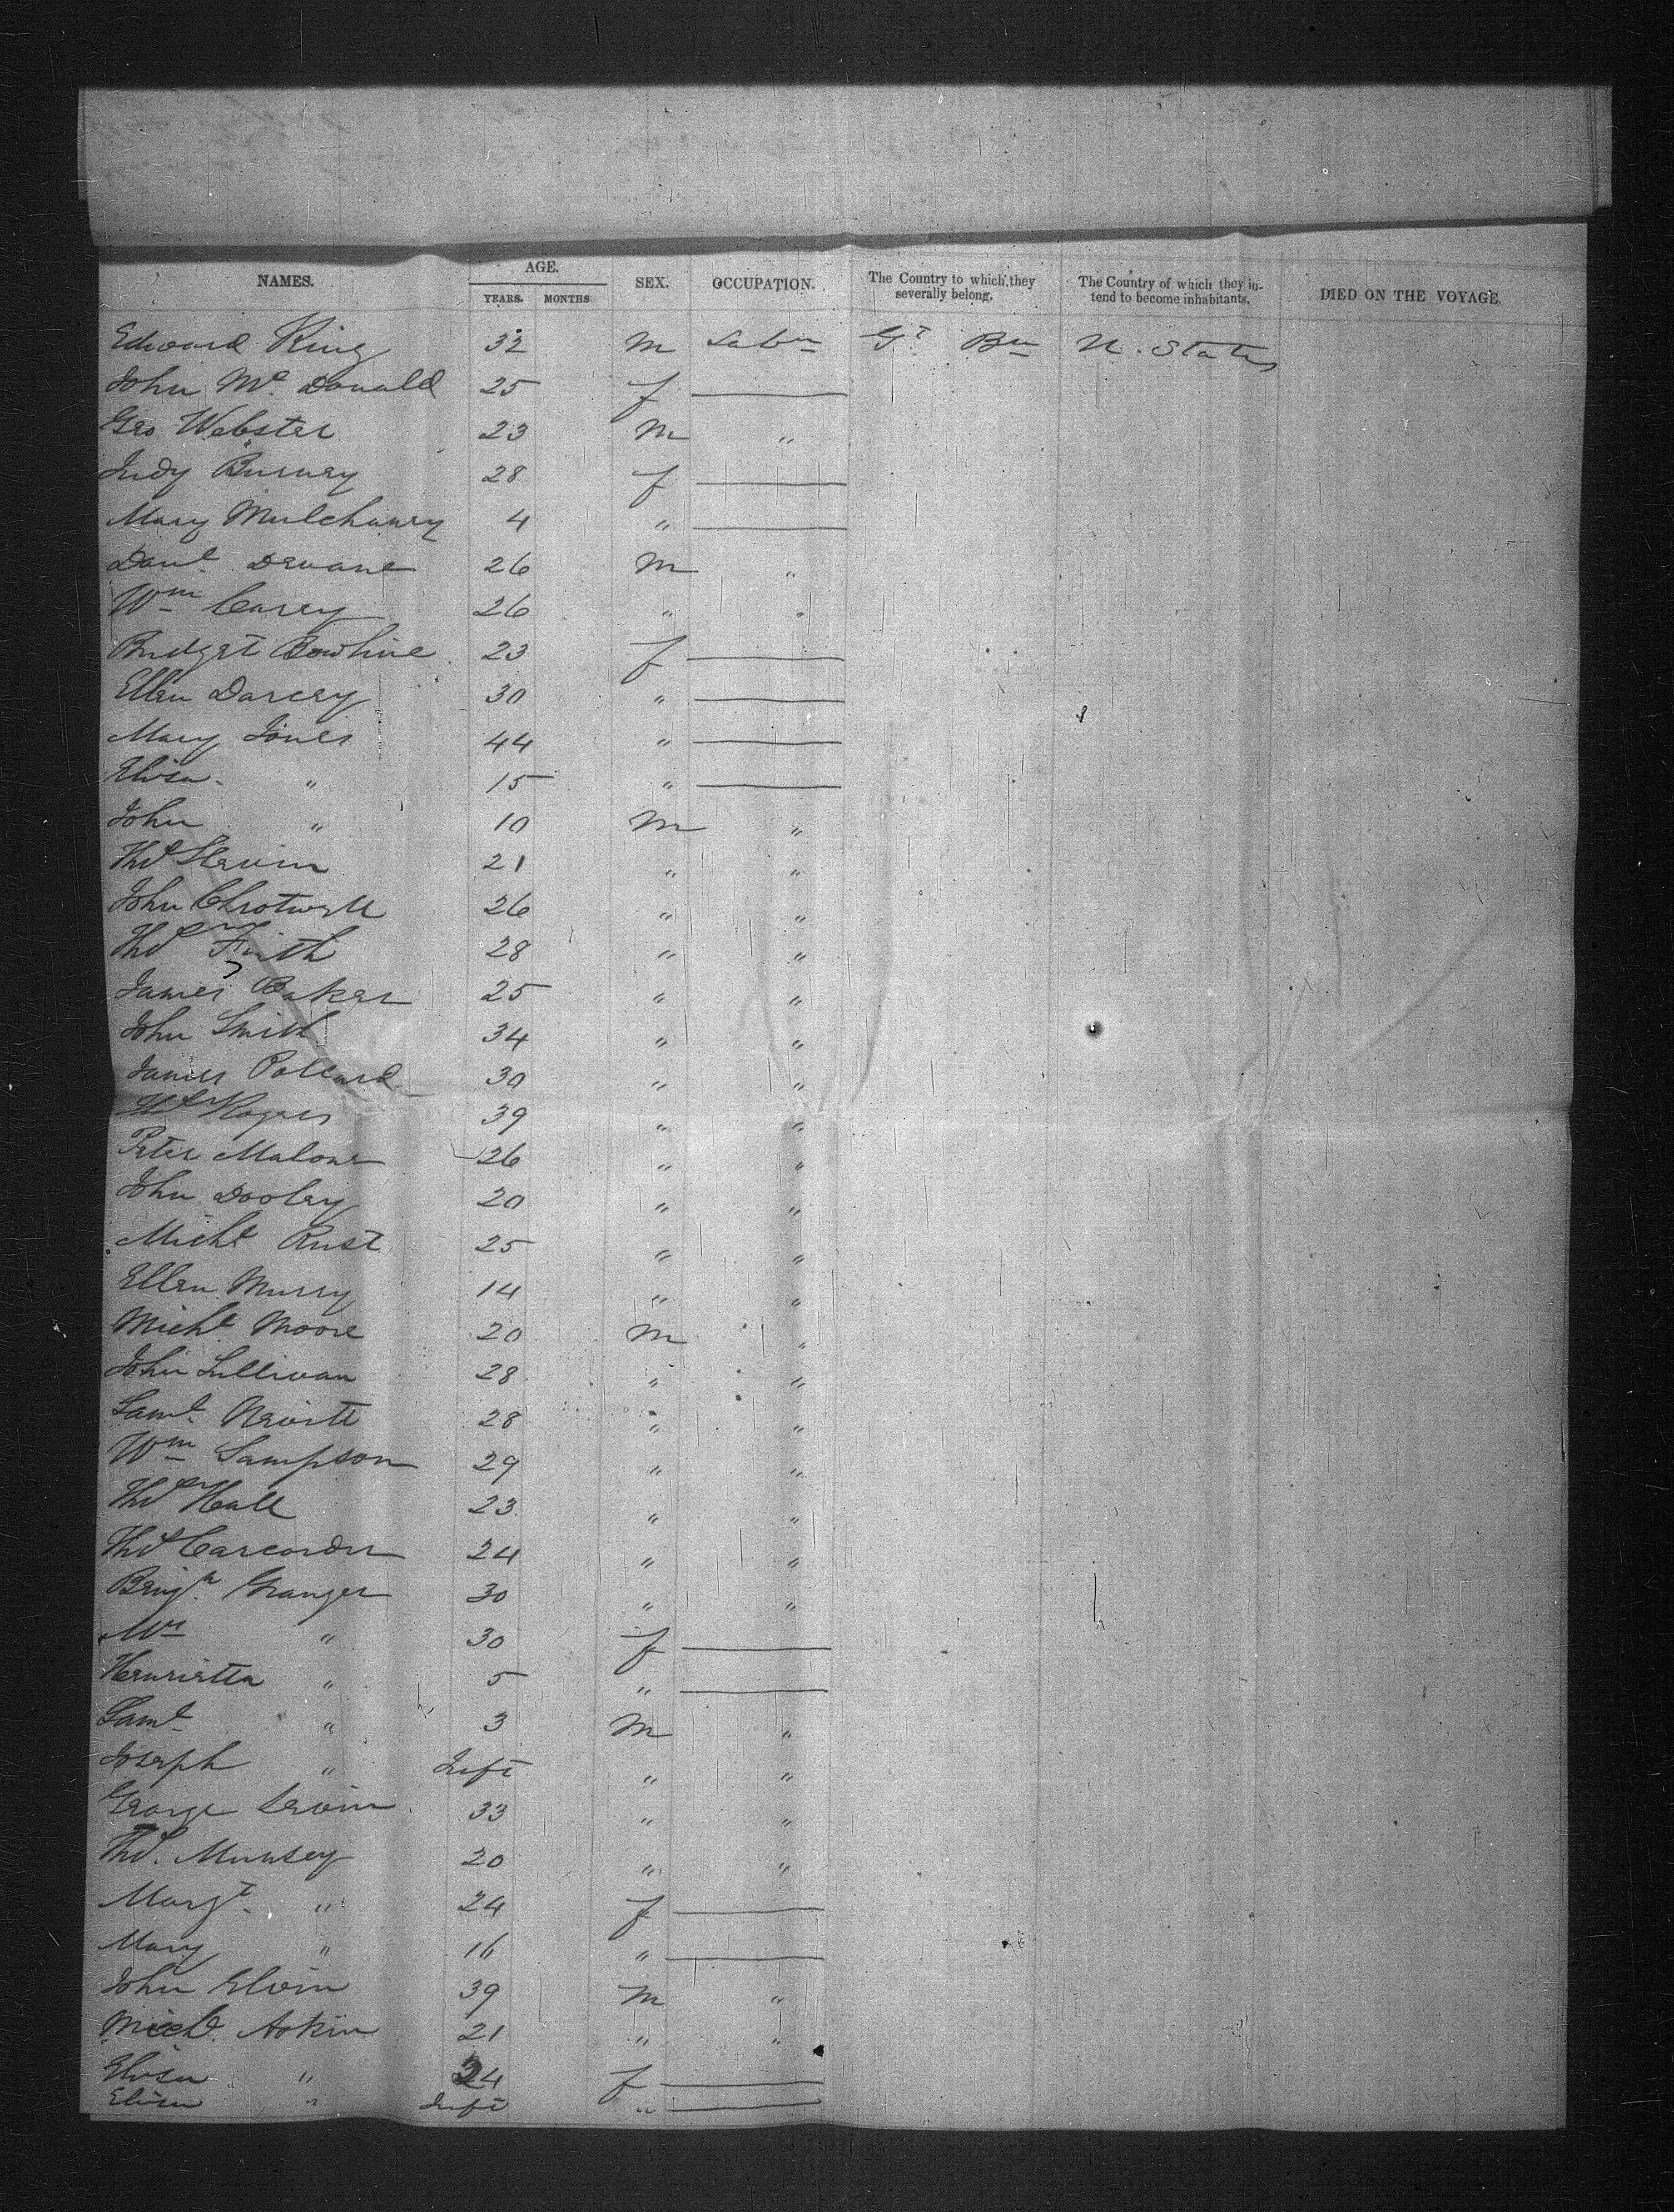 NAMES. AGE. SEX. OCCUPATION. The Country to which they severally belong. The Country of which they intend to become inhabitants. DIED ON THE VOYAGE.
YEARS. MONTHS
Edward King 32 M Labr Gt Bn U. States
John Mc Donald 25 f
Geo Webster 23 M "
Judy Burney 28 f
Mary Mulchanry 4 "
Danl. Devane 26 M "
Wm Carey 26 " "
Bridget Bowline 23 f
Ellen Darcey 30 "
Mary Jones 44 "
Eliza " 15 "
John " 10 M "
Thos Slevin 21 " "
John Chrotwell 26 " "
Thos Frith 28 " "
James Baker 25 " "
John Smith 34 " "
James Pollard 30 " "
Thos Rogers 39 " "
Peter Malone 26 " "
John Dooley 20 " "
Michl Rust 25 " "
Ellen Murry 14 " "
Michl. Moore 20 M "
John Sullivan 28 " "
Saml. Nevitt 28 " "
Wm Sampson 29 " "
Thos Hall 23 " "
Thos 24 " "
Benjn. Granger 30 " "
Mrs " 30 f
Henrietta " 5 "
Saml " 3 M "
Joseph " Inft " "
George 33 " "
Thos. Munsey 20 " "
Margt. " 24 f
Mary " 16 "
John Elvin 39 M "
Michl. Askin 21 " "
Eliza " 24 f
Eliza " Inft "